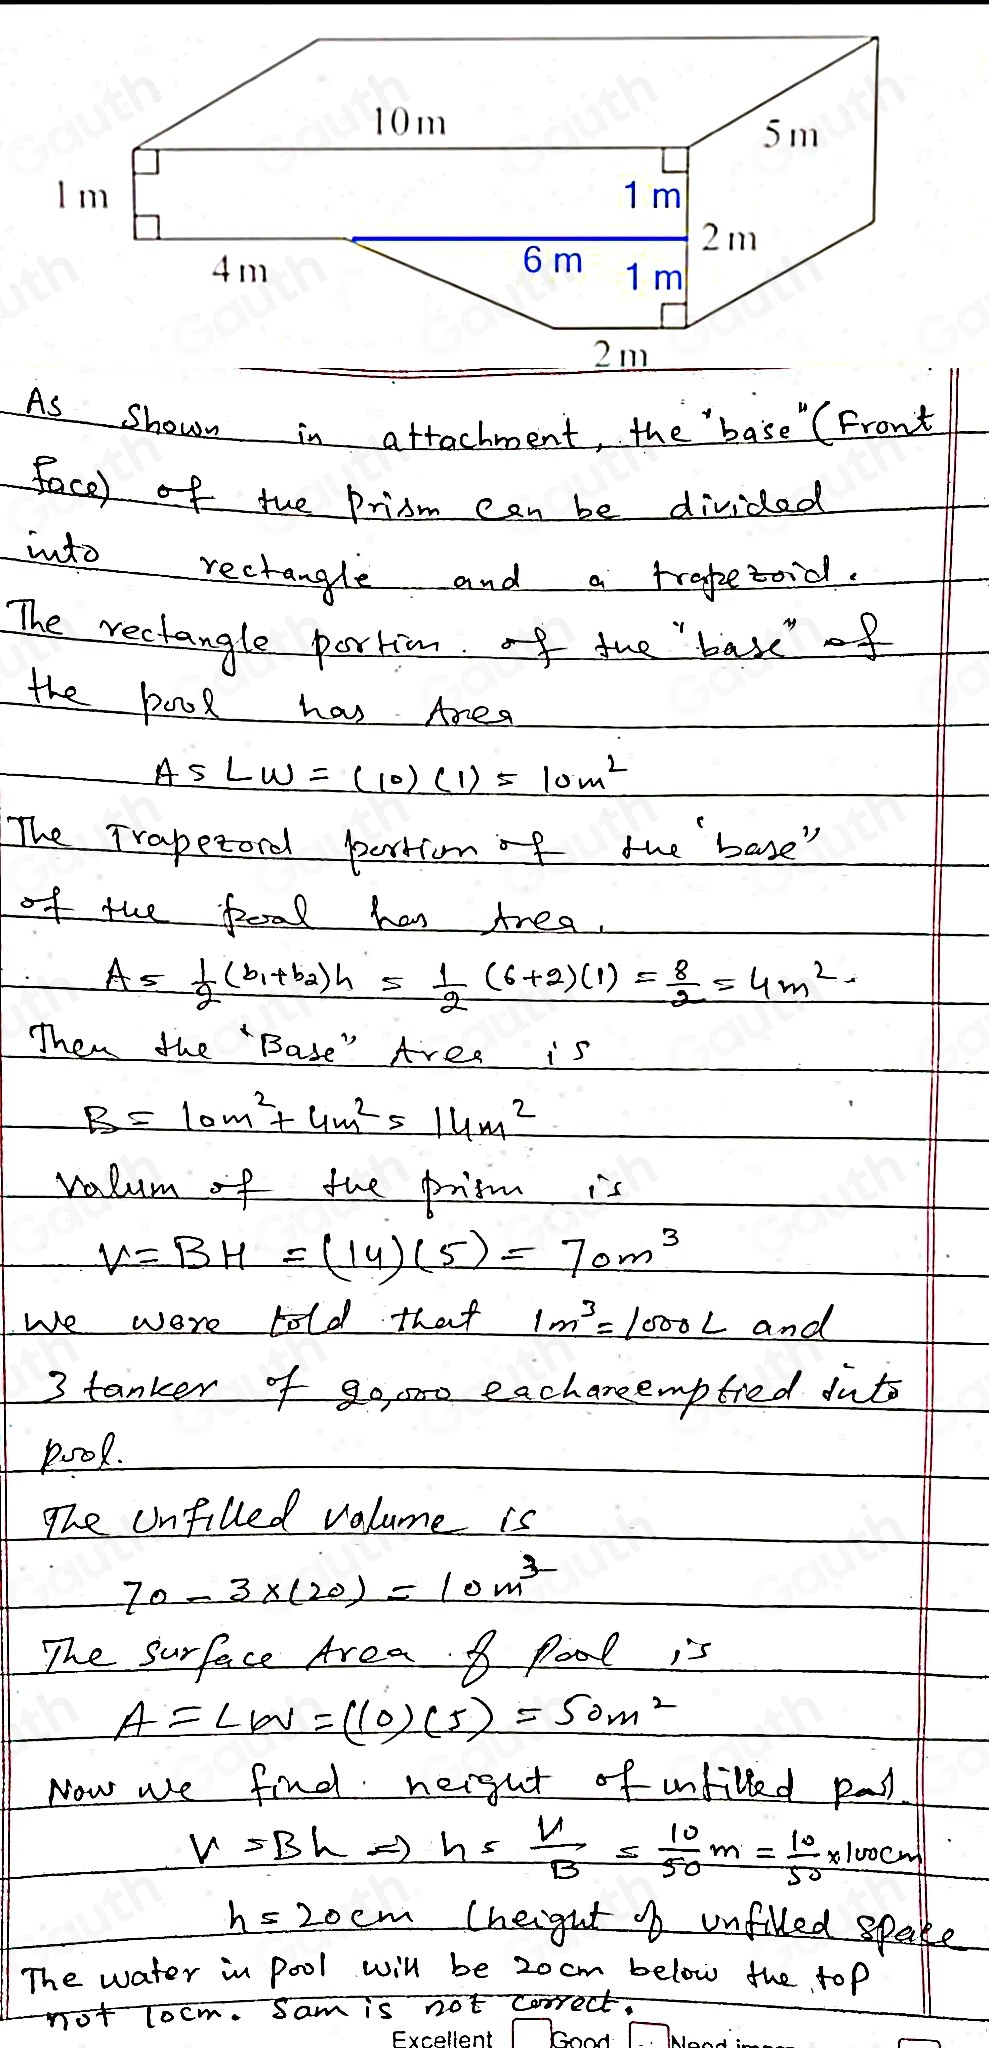 10 m
5 m
1 m
1 m
2 m
4 m
6 m
1 m
2 m
As Shown in attachment, the "base" (Front
face) of the prism can be divided
into rectangle and a trapezoid.
The rectangle portion of the "base" of
the pool has Area
A = LW = (10) (1) = 10m²
The Trapezord portion of the "base"
of the pool has Area.
A = 1/2 (b1+b2)h = 1/2 (6+2)(1) = 8/2 = 4m².
Then the "Base" Area is
B = 10m² + 4m² = 14m²
Valum of the prism is
V = BH = (14)(5) = 70m³
We were told that 1m³ = 1000L and
3 tanker of 20,000 each are emptied into
pool.
The Unfilled Valume is
70 - 3×(20) = 10m³
The Surface Area of Pool is
A = LW = (10)(5) = 50m²
Now we find height of unfilled part.
V = Bh ⇒ h = V/B = 10/50 m = 10/50 × 100cm
h = 20cm (height of unfilled space
The water in pool will be 20cm below the top
not 10cm. Sam is not correct.
Excellent Good